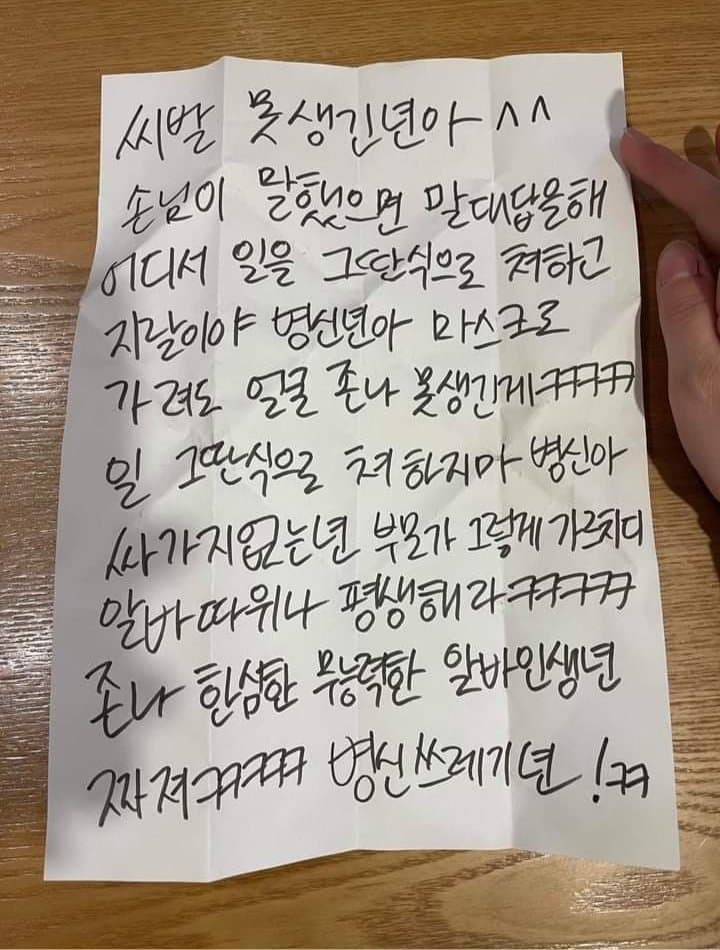 씨발 못생긴년아 ^^
손님이 말했으면 말대답을해
어디서 일을 그딴식으로 쳐하고
지랄이야 병신년아 마스크로
가려도 얼굴 존나 못생긴게ㅋㅋㅋㅋ
일 그딴식으로 쳐하지마 병신아
싸가지없는년 부모가 그렇게 가르치디
알바따위나 평생해라ㅋㅋㅋㅋㅋ
존나 한심한 무능력한 알바인생년
꺼져ㅋㅋㅋㅋ 병신쓰레기년 !ㅋㅋ